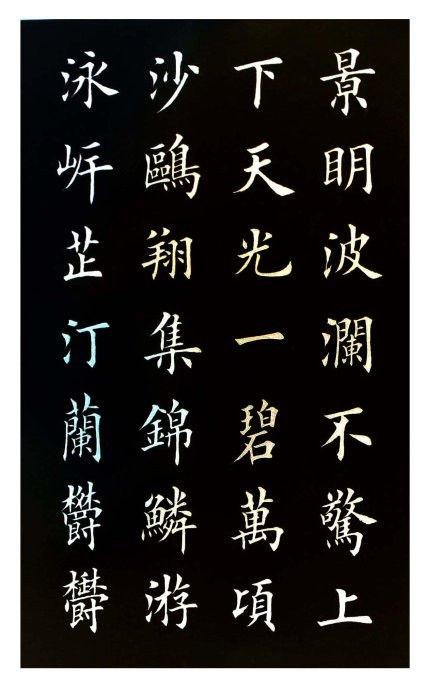 景明波瀾不驚上
下天光一碧萬頃
沙鷗翔集錦鱗游
泳岸芷汀蘭欝欝